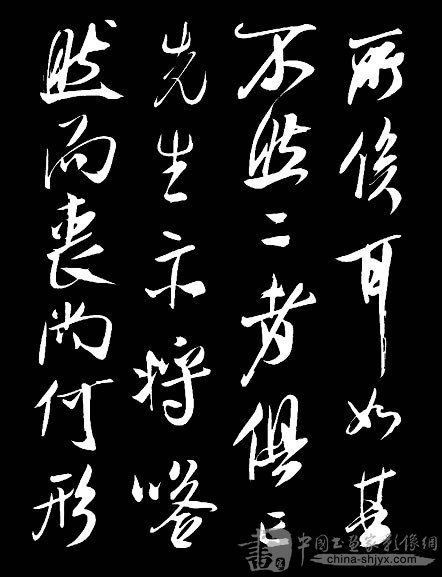 所俟耳如其
不然二者俱亡
先生亦將嗒
然而喪尚何形
中国书画家影像網
china-shjyx.com